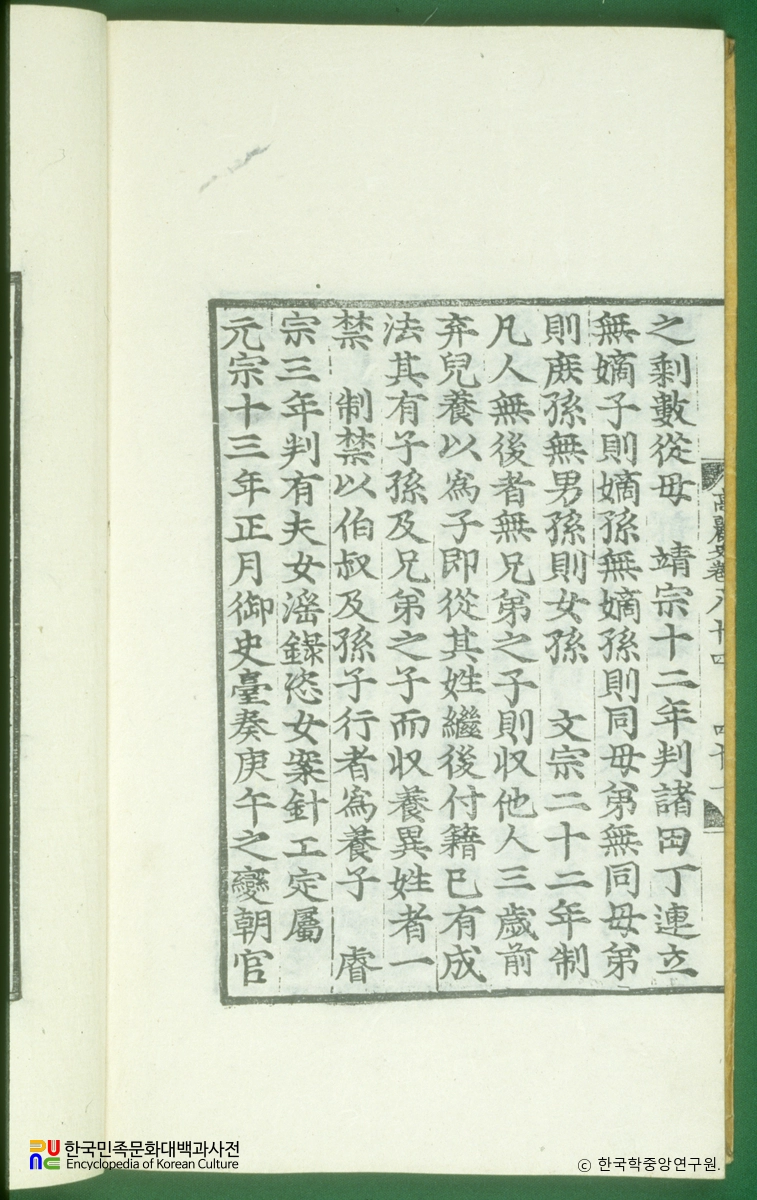 之剩數從母　靖宗十二年判諸田丁連立
無嫡子則嫡孫無嫡孫則同母弟無同母弟
則庶孫無男孫則女孫　文宗二十二年制
凡人無後者無兄弟之子則収他人三歲前
弃兒養以爲子即從其姓繼後付籍已有成
法其有子孫及兄弟之子而収養異姓者一
禁　制禁以伯叔及孫子行者爲養子　睿
宗三年判有夫女滛錄恣女案針工定屬
元宗十三年正月御史臺奏庚午之變朝官
高麗史卷八十四
한국민족문화대백과사전
Encyclopedia of Korean Culture
© 한국학중앙연구원.